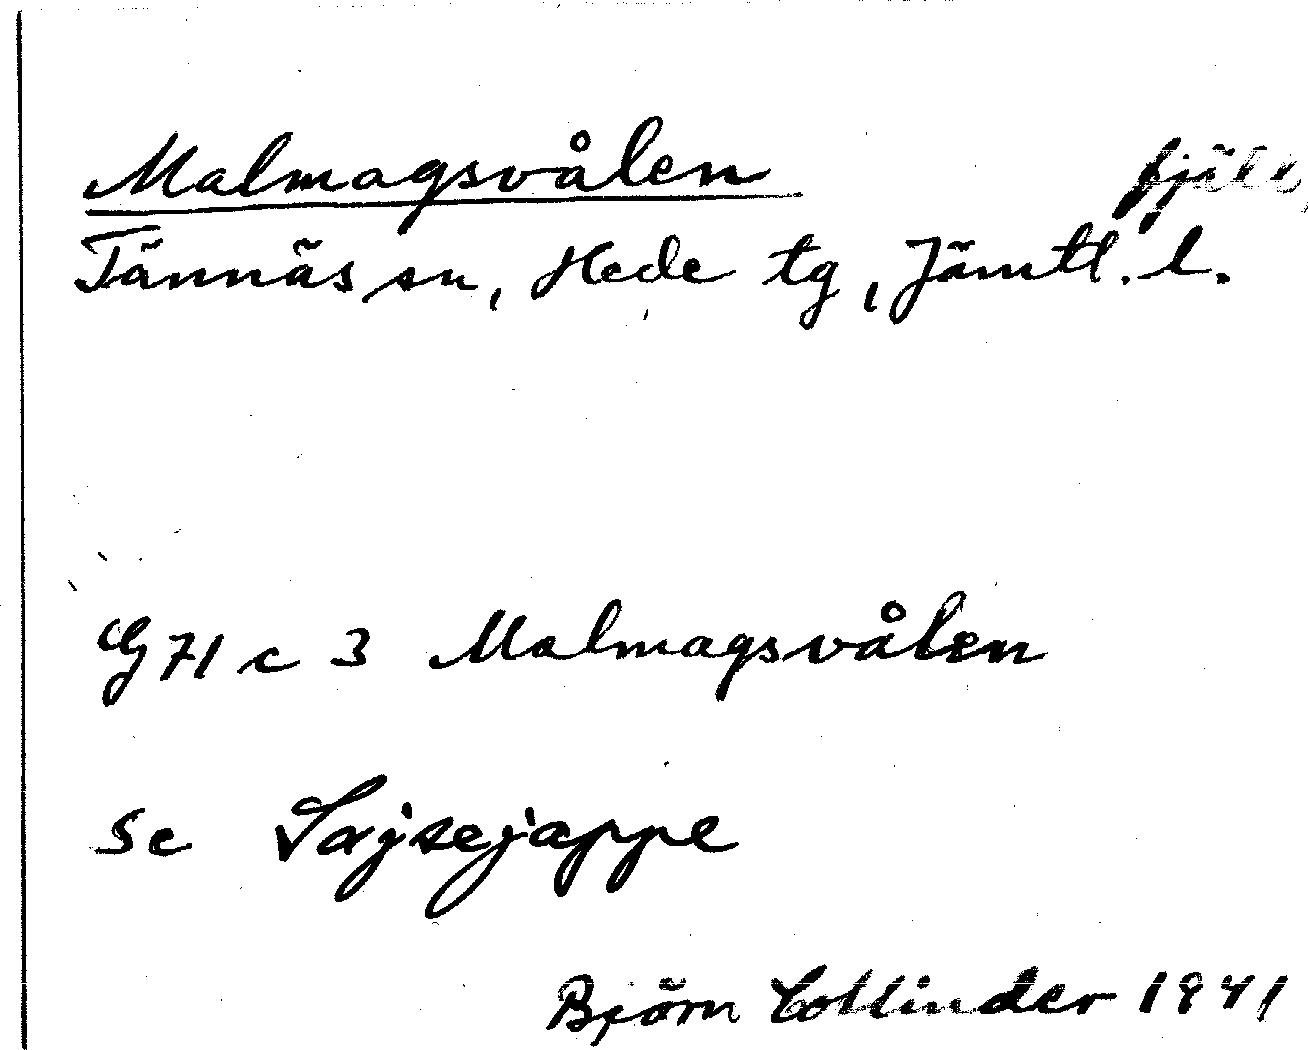 Malmagsvålen fjäll,
Tännäs sn, Hede tg, Jämtl. l.
G 71 c 3 Malmagsvålen
Se Sajsejappe
Björn Collinder 1941